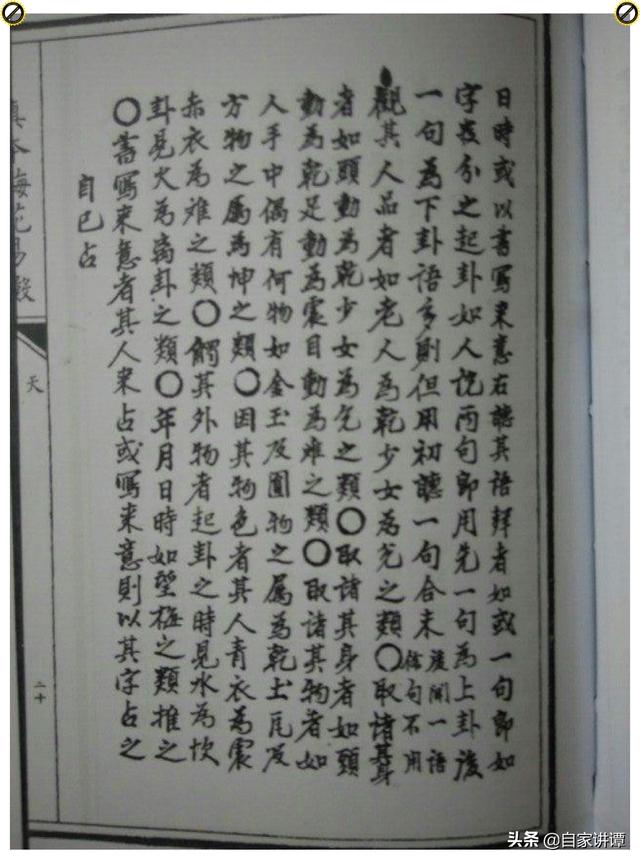 日時或以書寫來意右聽其語聲者如或一句即如
字數分之起卦如人說兩句即用先一句為上卦後
一句為下卦語多則但用初聽一句合末後聞一語
餘句不用
觀其人品者如老人為乾少女為兌之類〇取諸其身
者如頭動為乾少女為兌之類〇取諸其身者如頭
動為乾足動為震目動為难之類〇取諸其物者如
人手中偶有何物如金玉及圓物之属為乾土瓦及
方物之属為坤之類〇因其物色者其人青衣為震
赤衣為难之類〇觸其外物者起卦之時見水為坎
卦見火為离卦之類〇年月日時如望梅之類推之
〇書寫來意者其人來占或寫來意則以其字占之
自己占
真本梅花易數
天
二十
头条 @自家讲谭